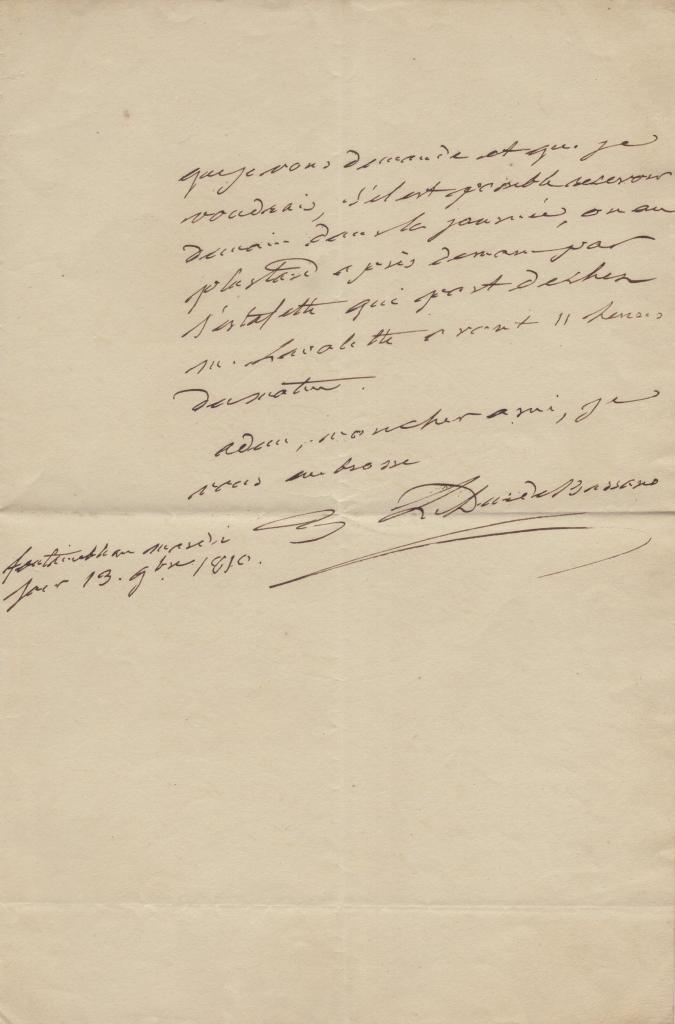 que je vous demande et que je
voudrais, s'il est possible recevoir
demain dans la journée, ou au
plus tard après demain par
l'estafette qui part de chez
m. Lavalette avant 11 heures
du matin.
adieu, mon cher ami, je
vous embrasse
Le Duc de Bassano
fontainebleau mardi
soir 13. 9bre 1810.